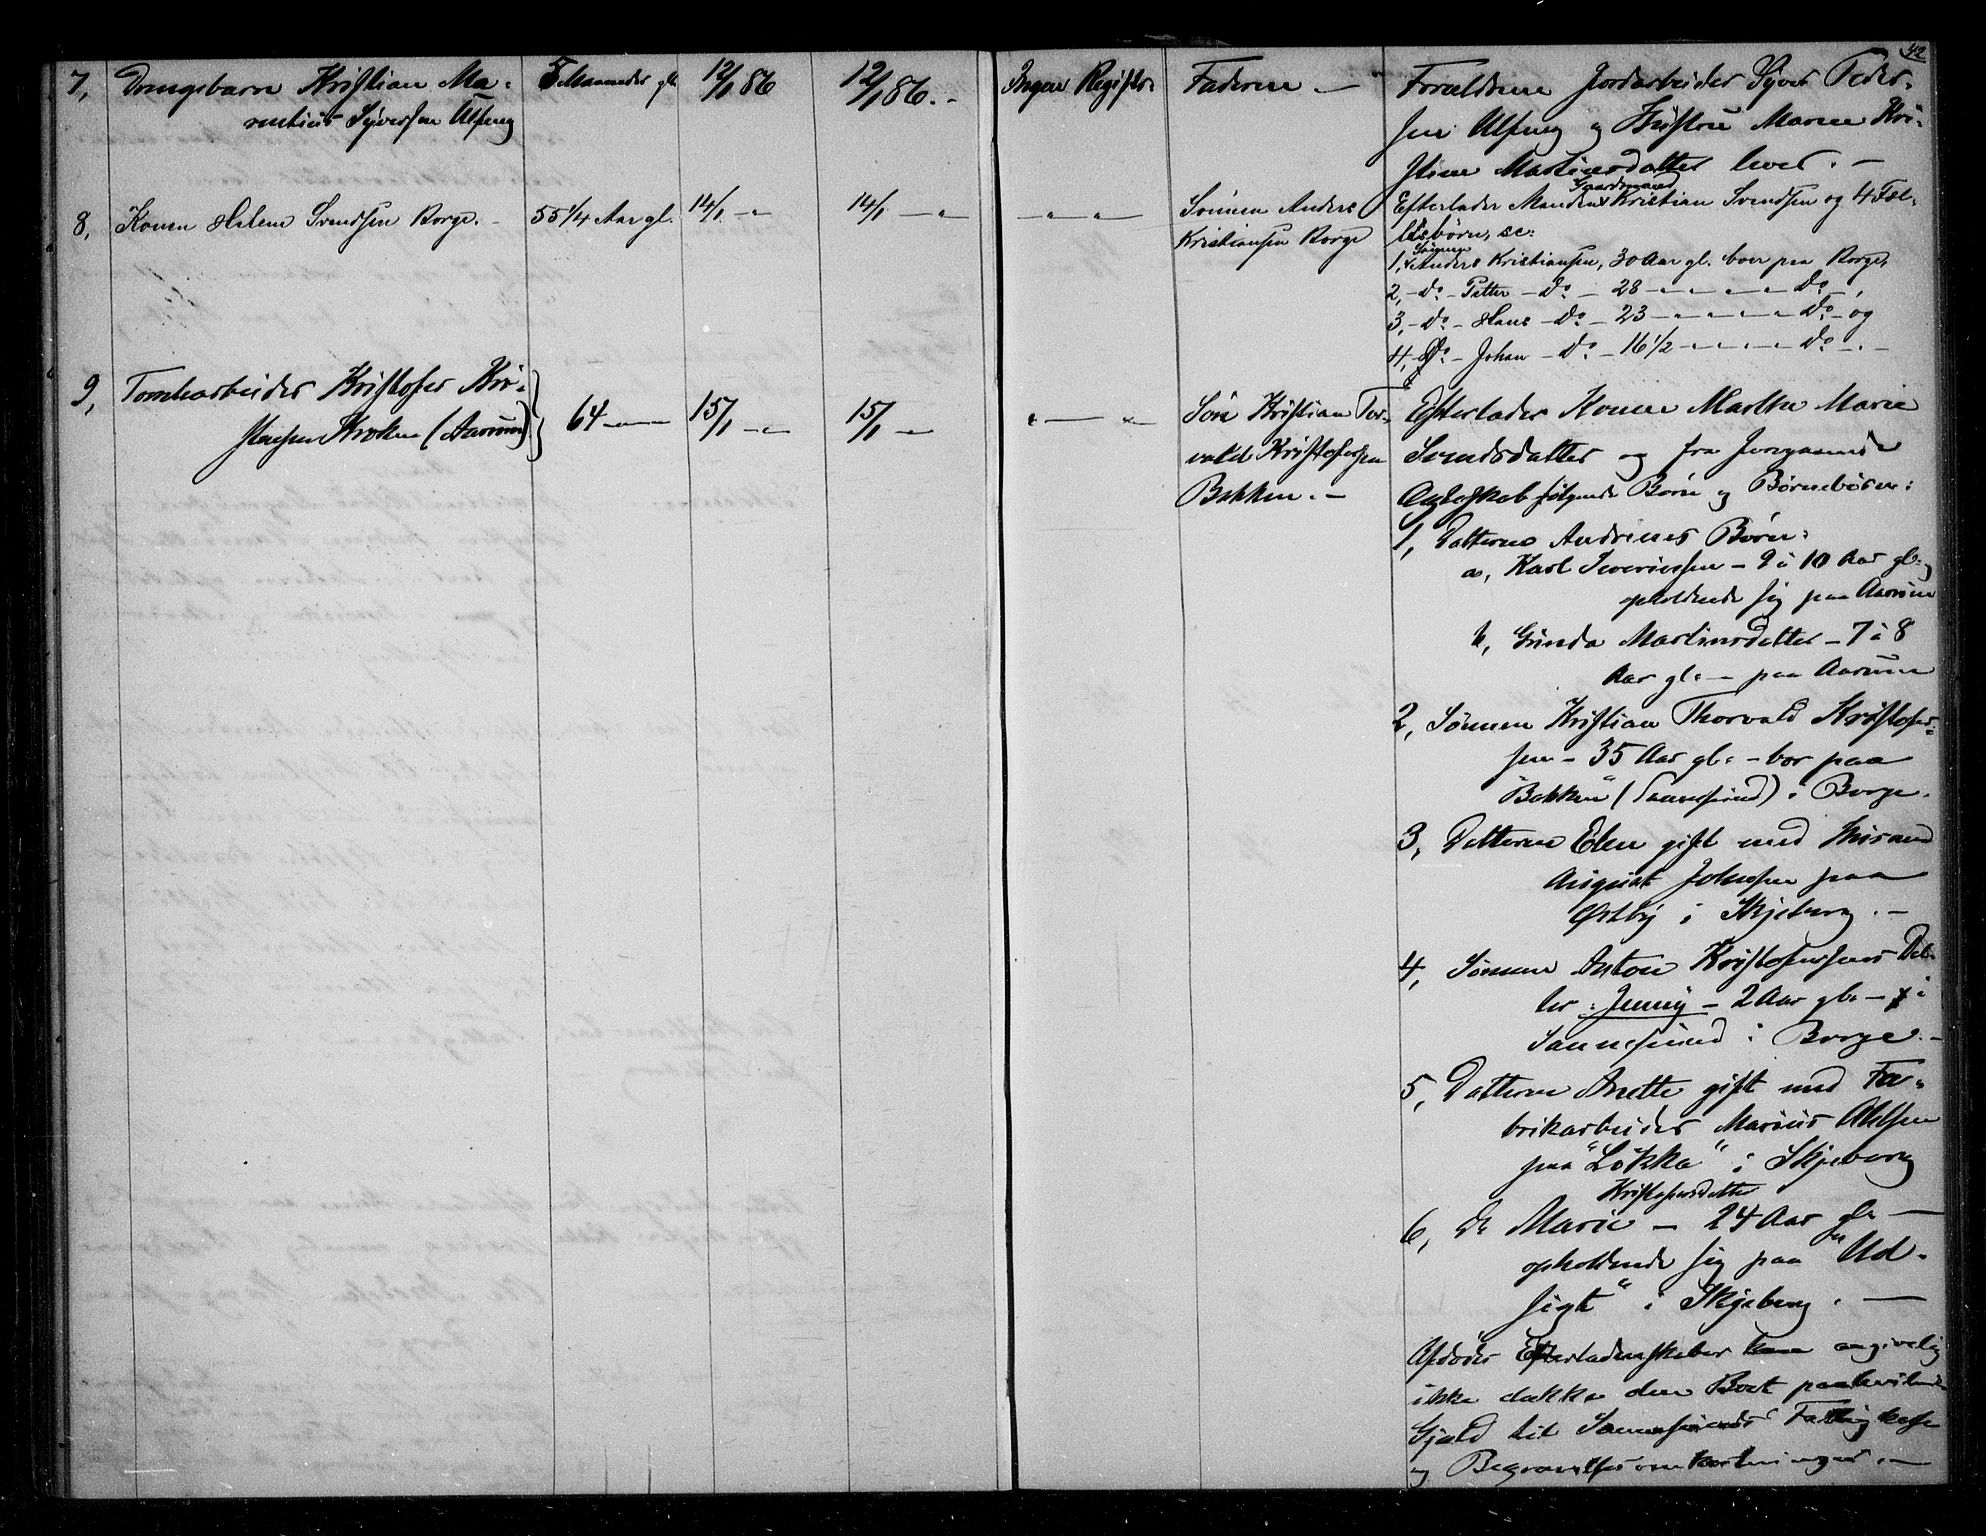 42
7, Drengebarn Kristian Ma-
rentius Syversen Ulfeng
5 Maaneder gl.
12/1 86
12/1 86. -
Ingen Registr.
Faderen -
Forældrene Jordarbeider Syver Peder-
sen Ulfeng og Hustru Maren Kri-
stine Martinsdatter lever. -
8, Konen Helene Svendsen Borge. -
55 1/4 Aar gl.
14/1 - "
14/1 - "
- " - " -
Sønnen Anders
Kristiansen Borge
Efterlader Manden Gaardmand Kristian Svendsen og 4 Fæl-
lesbørn, sc:
1, Sønnen Anders Kristiansen, 30 Aar gl. boer paa Borge,
2, - do - Petter - do - 28 - " - " - " - do -,
3, - do - Hans - do - 23 - " - " - " - do - og
4, - do - Johan - do - 16 1/2 - " - " - " - do - . -
9, Tomtearbeider Kristofer Kri-
stensen Kroken (Aarum)
64 - " -
15/1 - "
15/1 - "
" - " -
Søn Kristian Tor-
vald Kristofersen
Bakken. -
Efterlader Konen Marthe Marie
Svendsdatter og fra foregaaende
Ægteskab følgende Børn og Børnebørn:
1, Datteren Andrines Børn:
a, Karl Severinsen - 9 à 10 Aar gl. og
opholdende sig paa Aarum
b, Gunda Martinsdatter - 7 à 8
Aar gl. - paa Aarum
2, Sønnen Kristian Thorvald Kristofer-
sen - 35 Aar gl. - bor paa
"Bakken" (Sannesund) i Borge.
3, Datteren Elen gift med Husmand
August Johnsen paa
Østby i Skjeberg. -
4, Sønnen Anton Kristofersens Dat-
ter: Jenny - 2 Aar gl. - i
Sannesund i Borge. -
5, Datteren Anette gift med Fa-
brikarbeider Marius Ahlsen
paa "Løkka" i Skjeberg
6, do Marie Kristofersdatter - 24 Aar gl. -
opholdende sig paa "Ud-
sigt" i Skjeberg. -
Afdødes Efterladenskaber kan angivelig
ikke dække den Boet paahvilende
Gjæld til Sannesunds Fattigkasse
og Begravelsesomkostninger. -